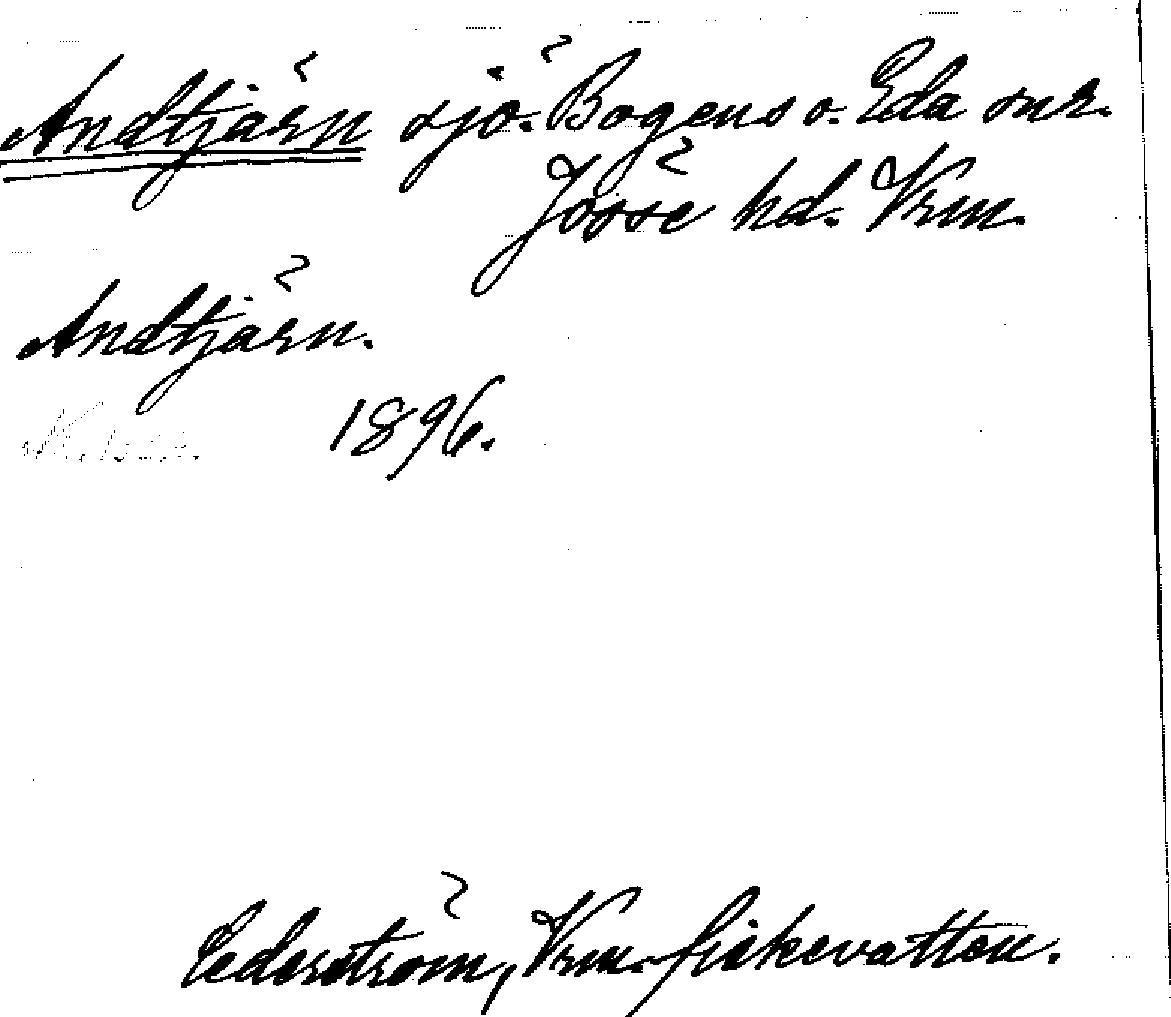 Andtjärn sjö. Bogens o. Eda snr.
Jösse hd. Vrm.
Andtjärn.
1896.
Cederström, Vrm. fiskevatten.